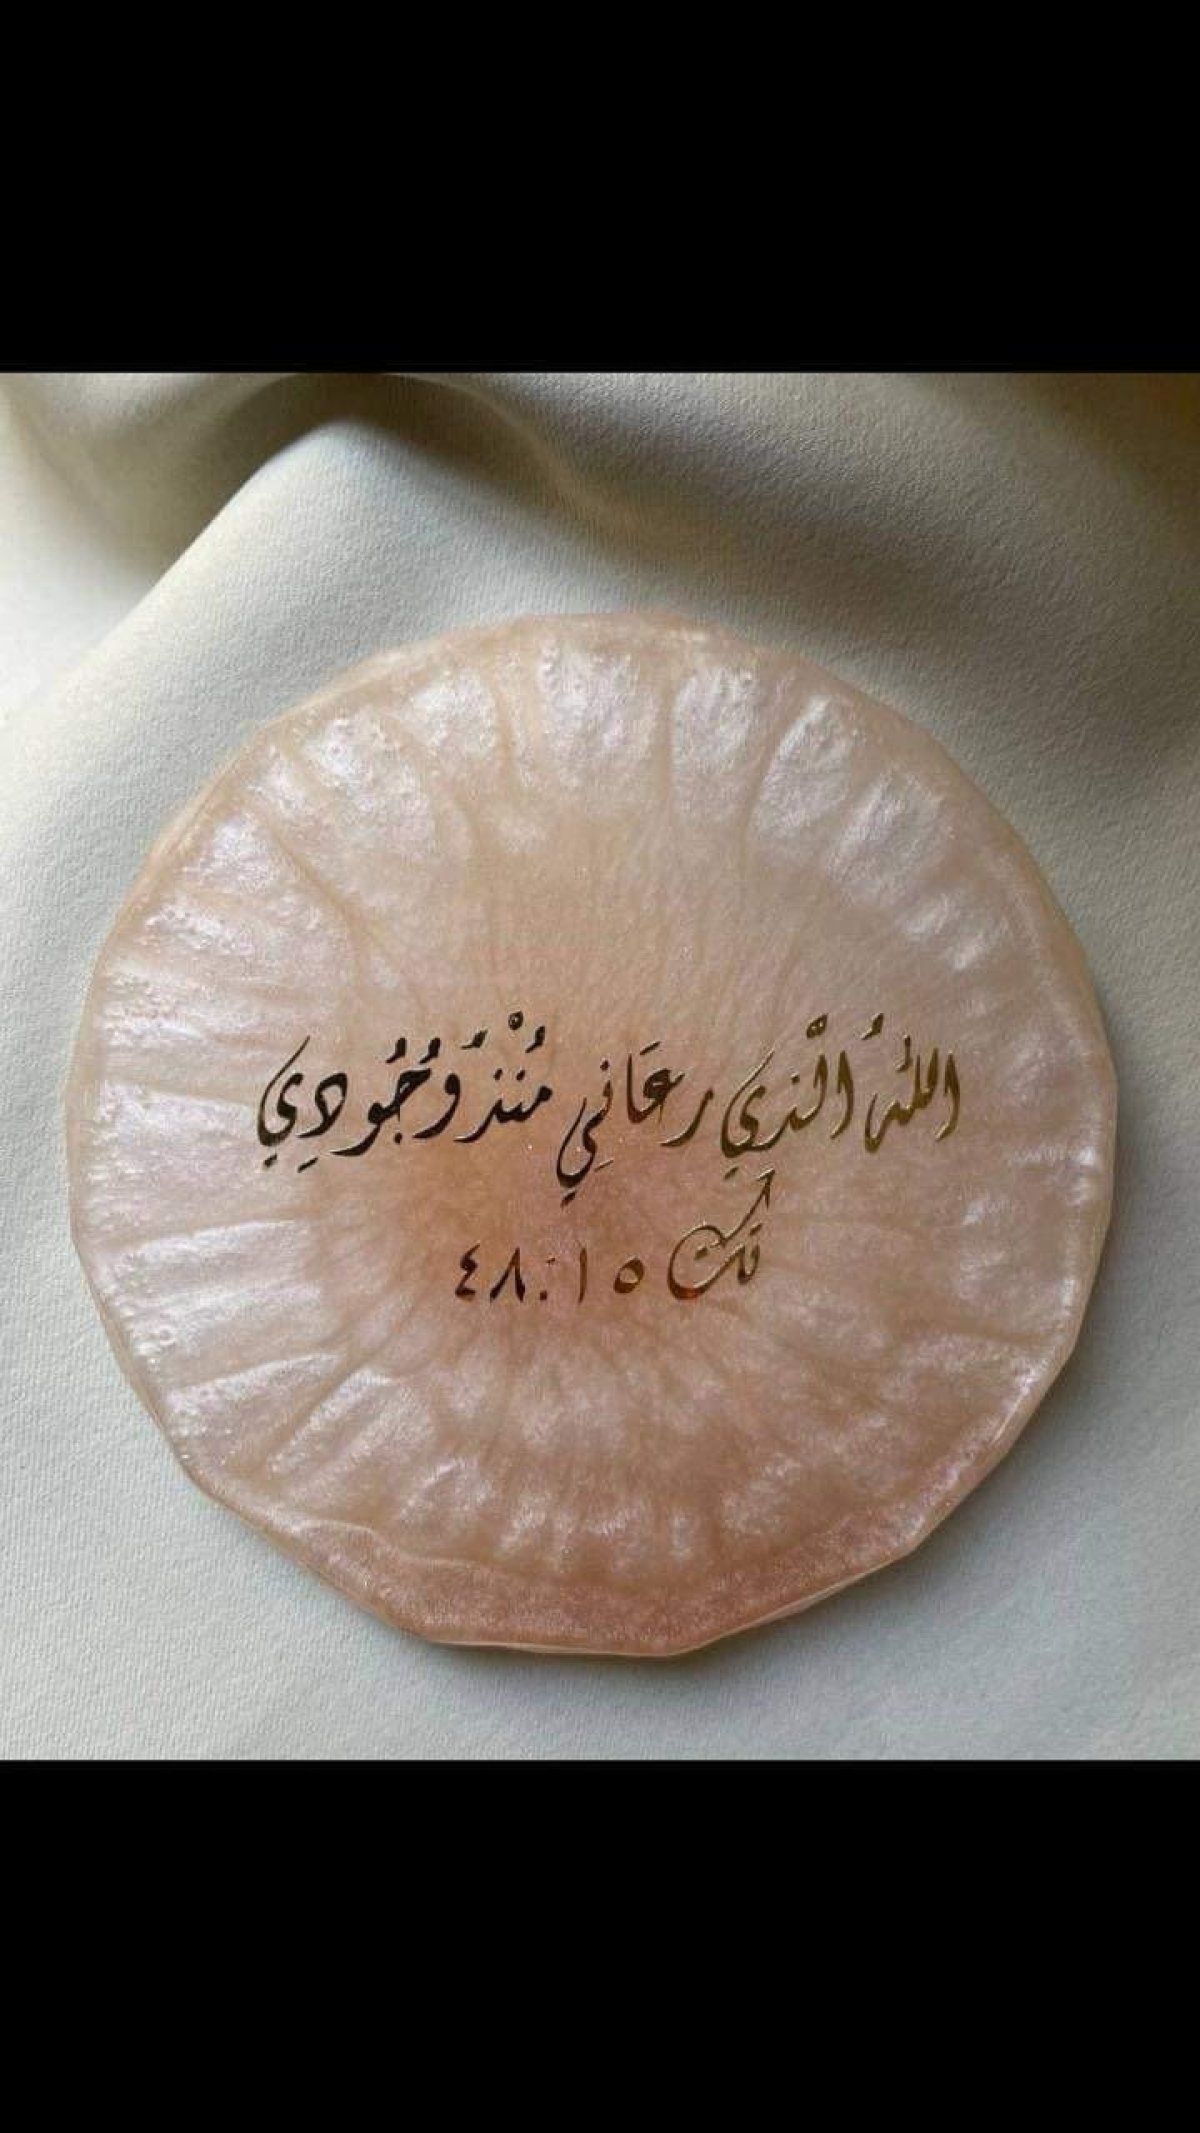 اللهُ الَّذِي رعَانِي مُنْذُ وُجُودِي
تك ٤٨:١٥